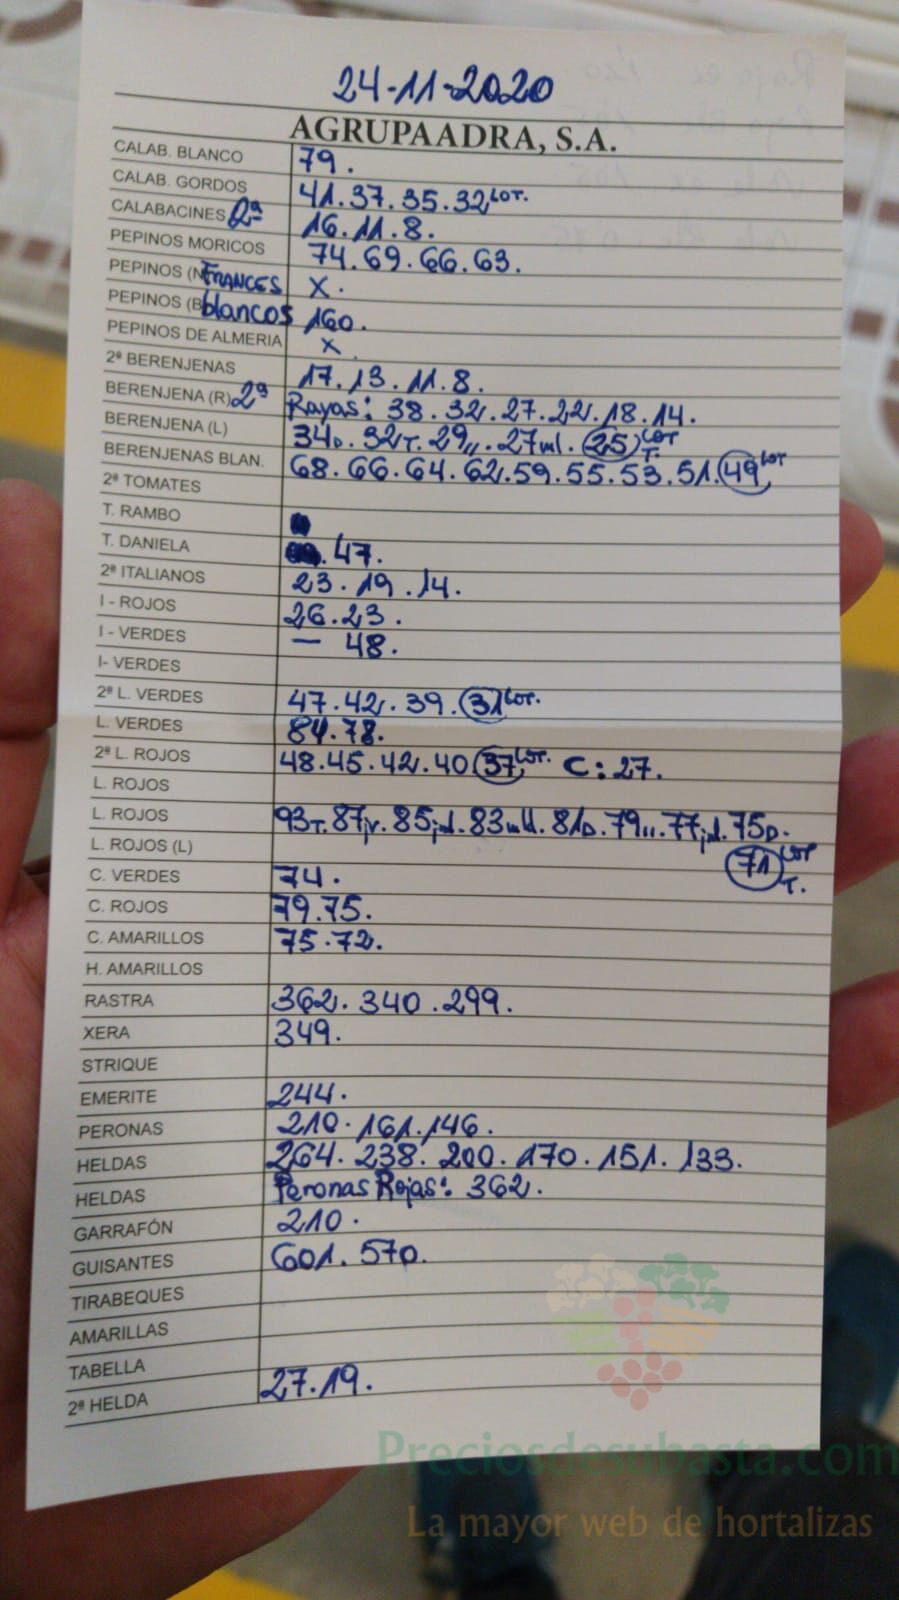 24-11-2020
AGRUPAADRA, S.A.
CALAB. BLANCO 79.
CALAB. GORDOS 41.37.35.32 LOT.
CALABACINES 2ª 16.11.8.
PEPINOS MORICOS 74.69.66.63.
PEPINOS (N FRANCES X.
PEPINOS (B blancos 160.
PEPINOS DE ALMERIA X.
2ª BERENJENAS 17.13.11.8.
BERENJENA (R) 2ª Rayas: 38.32.27.22.18.14.
BERENJENA (L) 34D. 32T. 29,,. 27ml. 25 LOT T.
BERENJENAS BLAN. 68.66.64.62.59.55.53.51.49 LOT
2ª TOMATES
T. RAMBO
T. DANIELA .47.
2ª ITALIANOS 23.19.14.
I - ROJOS 26.23.
I - VERDES — 48.
I- VERDES
2ª L. VERDES 47.42.39.31 LOT.
L. VERDES 84.78.
2ª L. ROJOS 48.45.42.40 37 LOT. C: 27.
L. ROJOS
L. ROJOS 93T. 87jr. 85 83 81D. 79,,. 77 75D.
L. ROJOS (L) 71 LOT T.
C. VERDES 74.
C. ROJOS 79.75.
C. AMARILLOS 75.72.
H. AMARILLOS
RASTRA 362. 340. 299.
XERA 349.
STRIQUE
EMERITE 244.
PERONAS 210.161.146.
HELDAS 264. 238. 200. 170. 151. 133.
HELDAS Peronas Rojas: 362.
GARRAFÓN 210.
GUISANTES 601. 570.
TIRABEQUES
AMARILLAS
TABELLA
2ª HELDA 27.19.
Preciosdesubasta.com
La mayor web de hortalizas